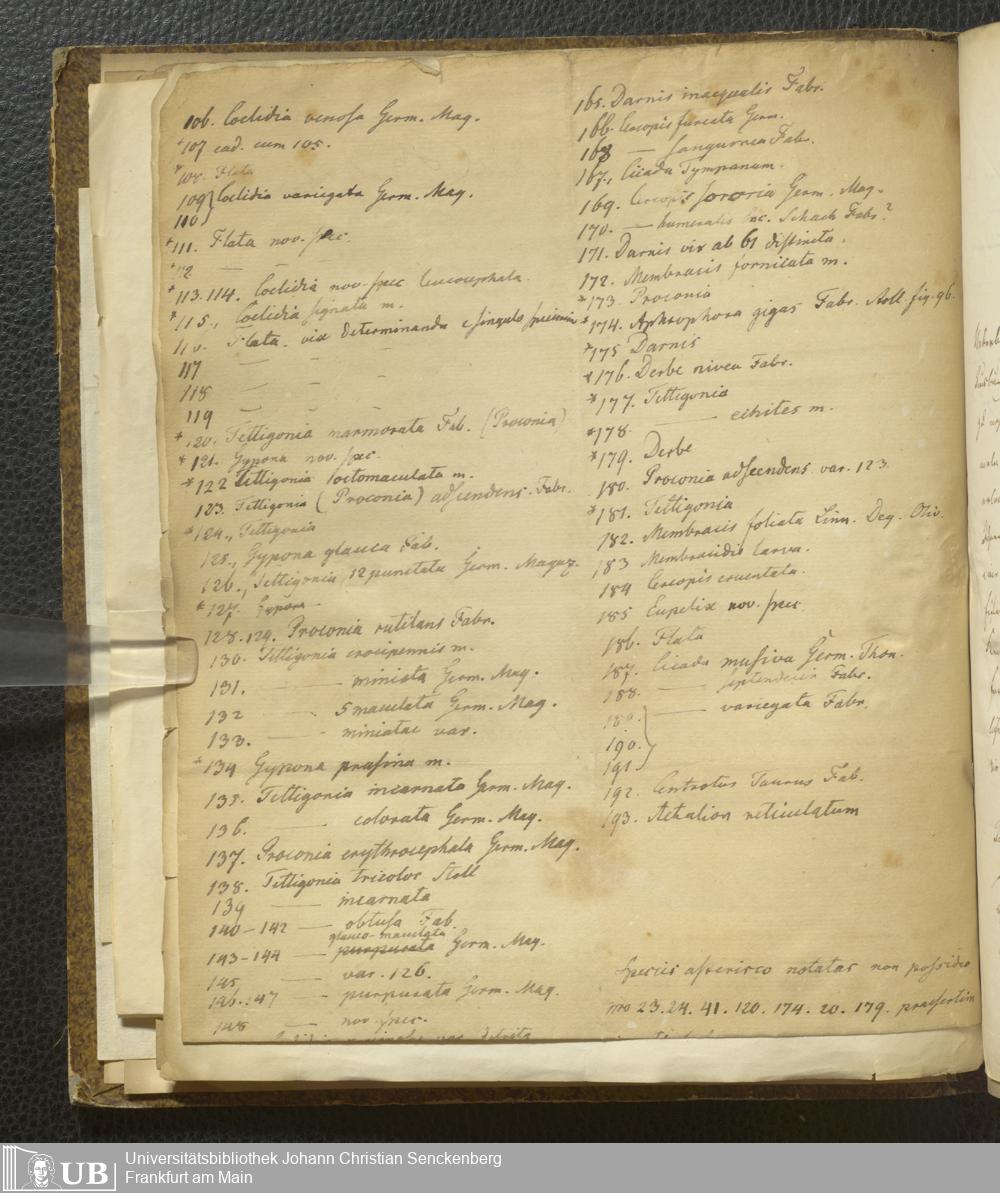 106. Coelidia venosa Germ. Mag.
*107 ead. cum 105.
*108. Flata
109 } Coelidia variegata Germ. Mag.
110
*111. Flata nov. spec.
*112 — —
*113.114. Coelidia nov. spec. leucocephala.
*115., Coelidia signata m.
116. Flata. vix determinanda e singulo specimine
117 — — —
118 — — —
119 — — —
*120. Tettigonia marmorata Fab. (Proconia)
*121. Gypona nov. spec.
*122 Tettigonia octomaculata m.
123. Tettigonia (Proconia) adscendens. Fabr.
*124., Tettigonia
125., Gypona glauca Fab.
126., Tettigonia 12punctata Germ. Magaz.
*127. Gypona
128.129. Proconia rutilans Fabr.
130. Tettigonia croceipennis m.
131. — miniata Germ. Mag.
132 — 5maculata Germ. Mag.
133. — miniatae var.
*134 Gypona prasina m.
135. Tettigonia incarnata Germ. Mag.
136. — colorata Germ. Mag.
137. Proconia erythrocephala Germ. Mag.
138. Tettigonia tricolor Stoll
139 — incarnata
140-142 — obtusa Fab.
glauco-maculata
143-144 — purpurata Germ. Mag.
145 — var. 126.
146.147 — purpurata Germ. Mag.
148 — nov. spec.
165. Darnis inaequalis Fabr.
166. Cercopis furcata Germ.
168 — sanguinea Fab.
167., Cicada Tympanum.
169. Cercopis sororia Germ. Mag.
170. — humeralis nc. Schach Fabr?
171. Darnis vix ab 61 distincta.
172. Membracis fornicata m.
*173. Proconia
*174. Aphrophora gigas Fabr. Stoll. fig. 96.
*175 Darnis
*176. Derbe nivea Fabr.
*177. Tettigonia
*178. — m.
*179. Derbe
180. Proconia adscendens var. 123.
*181. Tettigonia
182. Membracis foliata Linn. Deg. Oliv.
183 Membracidis larva.
184 Cercopis cruentata.
185 Eupelix nov. spec.
186. Flata
187. Cicada musiva Germ. Thon.
188. — septendecim Fabr.
189. } — variegata Fabr.
190.
191
192. Centrotus Taurus Fab.
193. Aetalion reticulatum
Species asterisco notatas non possideo
23.24. 41. 120. 174. 20. 179. praesertim
UB
Universitätsbibliothek Johann Christian Senckenberg
Frankfurt am Main